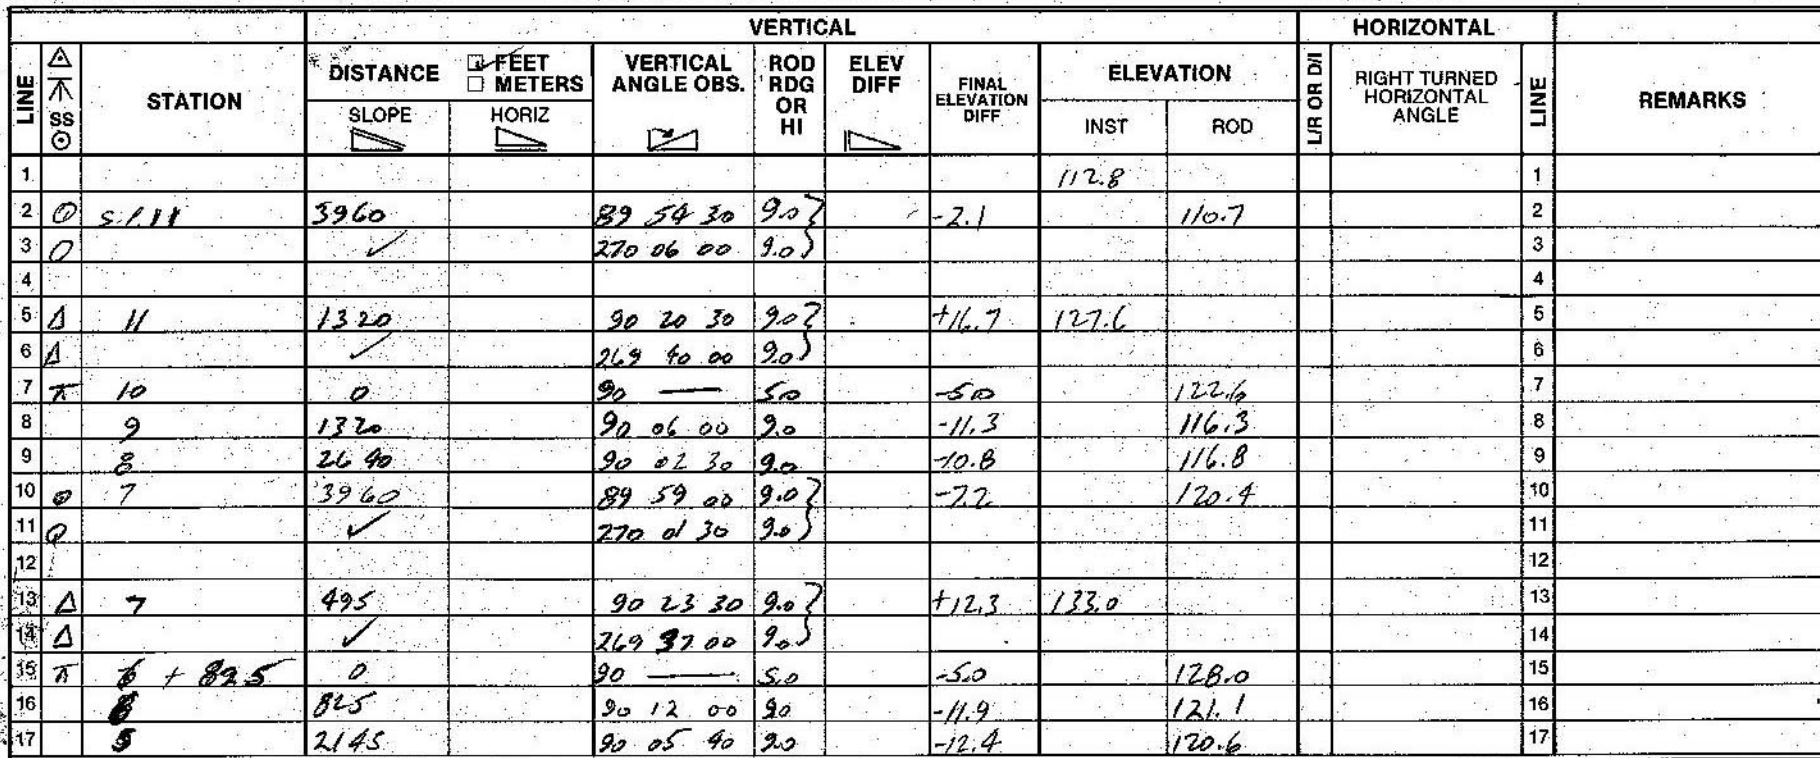 VERTICAL HORIZONTAL
LINE SS STATION DISTANCE FEET METERS VERTICAL ANGLE OBS. ROD RDG OR HI ELEV DIFF FINAL ELEVATION DIFF ELEVATION L/R OR D/I RIGHT TURNED HORIZONTAL ANGLE LINE REMARKS
SLOPE HORIZ INST ROD
1 112.8 1
2 3960 89 54 30 9.0 -2.1 110.7 2
3 270 06 00 9.0 3
4 4
5 11 1320 90 20 30 9.0 +16.7 127.6 5
6 269 40 00 9.0 6
7 10 0 90 — 5.0 -5.0 122.6 7
8 9 1320 90 06 00 9.0 -11.3 116.3 8
9 8 2640 90 02 30 9.0 -10.8 116.8 9
10 7 3960 89 59 00 9.0 -7.2 120.4 10
11 270 01 30 9.0 11
12 12
13 7 495 90 23 30 9.0 +12.3 133.0 13
14 269 37 00 9.0 14
15 6 + 825 0 90 — 5.0 -5.0 128.0 15
16 825 90 12 00 90 -11.9 121.1 16
17 5 2145 90 05 40 9.0 -12.4 120.6 17